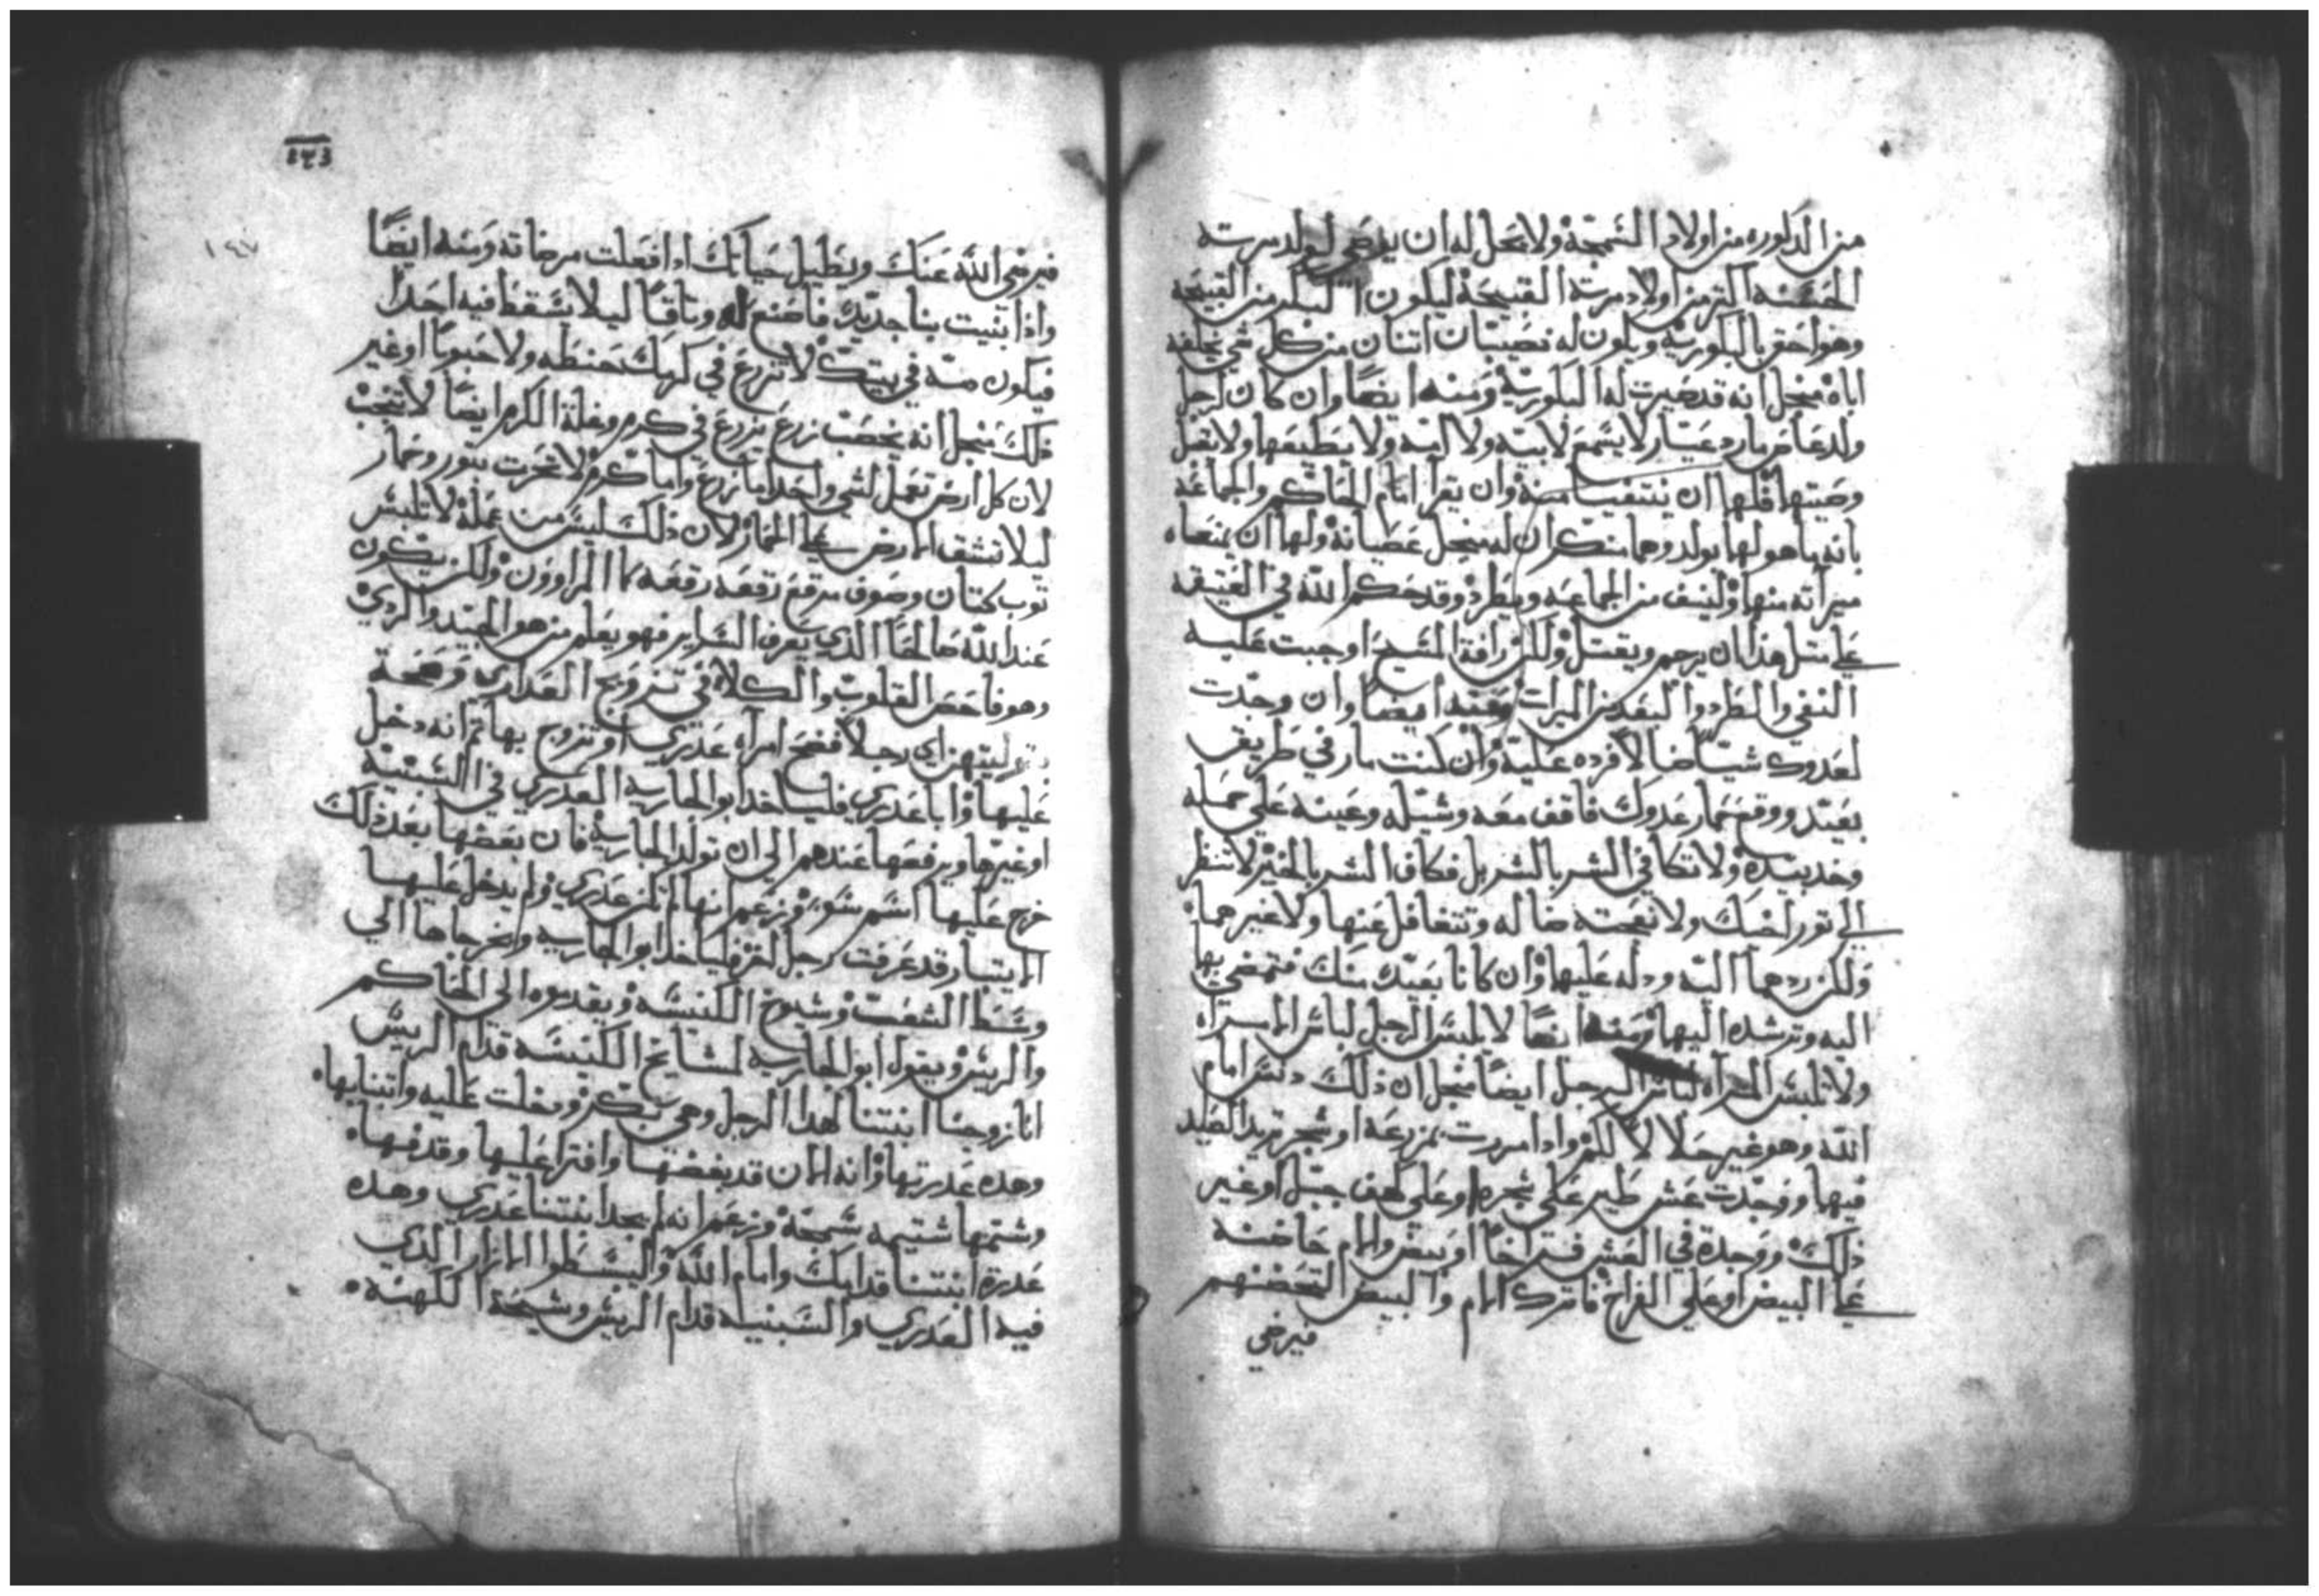 من الدكوره من اولاد السمجة ولا يحل له ان يوصي لولد مرته
الحسنه اكتر من اولاد مرته القبيحة ليكون البكر من القبيحه
وهو احق بالبكوريه ويكون له نصيبان اتنان من كل شي يخلفه
اباه منجل انه قد صيرت له البكورية ومنه ايضا وان كان لرجل
ولد عاص مارد عيار لا يسمع لابيه ولا اليه ولا يطيعها ولا يقبل
وصيتها فلها ان ينتفيا منه وان يقرا امام الحاكم والجماعه
بانه ما هو لها بولد وهما منكران له منجل عطيانه ولها ان يمنعاه
ميراته منها ولينف من الجماعه ويطرد وقد حكم الله في العتيقه
علي متل هذا ان يرجم ويقتل ولكن رافة المسيح اوجبت عليه
النفي والطرد والبعد من الميرات ومنه ايضا وان وجدت
لعدوك شيا ضالا فرده عليه وان كنت مار في طريق
بعيد ووقع حمار عدوك فاقف معه وشيله وعينه علي حمله
وخد بيده ولا تكافي الشر بالشر بل فكاف الشر بالخير لا تنظر
الي تور اخيك ولا نعجته ضاله وتتغافل عنها ولا غيرهما
ولكن ردهما اليه ودله عليها وان كانا بعيد منك فتمضي بها
اليه وترشده اليها ومنه ايضا لا يلبس الرجل لباس الامراه
ولا تلبس المراه لباس الرجل ايضا منجل ان ذلك دنس امام
الله وهو غير حلالا لكم وادا مررت بمزرعه او شجر تريد الصيد
فيها ووجدت عش طير علي شجره او علي كهف جبل او غير
ذلك ووجدة في العش فراخا او بيض والام حاضنه
علي البيض او علي الفراخ فاترك الام والبيض التحضنهم
فيرضي
١٤٧
فيرضي الله عنك ويطيل حياتك ادا فعلت مرضاته ومنه ايضا
واذا بنيت بنا جديد فاصنع له وتاقا ليلا تسقط فيه احدا
فيكون منه في بيتك لا تزرع في كرمك حنطه ولا حبوبا او غير
ذلك منجل انه يخصب زرع يزرع في كرم وغلة الكرم ايضا لا تنجب
لان كل ارض تعمل لشي واحد اما زرع واما كرم ولا تحرت بتور وحمار
ليلا تشق الارض علي الحمار لان ذلك ليس من عمله لا تلبس
توب كتان وصوف مرقع رقعه رقعه كما المراوون ولكن يكون
عند الله صالحا الذي يعرف السراير فهو يعلم من هو الجيد والردي
وهو فاحص القلوب والكلاه في تزويج العداري وصحة
اي رجلا فضح امراه عدري او تزوج بها تم انه دخل
عليها واباعدري فلياخد ابو الجاريه العدري في السبنيه
او غيرها ويرفعها عندهم الي ان تولد الجاريه فان بغضها بعد ذلك
خرج عليها اسم سو وزعم انها لم تكن عدري ولم يدخل عليها
الا يتبار قد عرفت رجل اخر فلياخدا ابو الجاريه ويخرجاها الي
وسط الشعب وشيوخ الكنيسه ويقدموه الي الحاكم
والريس ويقول ابو الجاريه لمشايخ الكنيسه قدام الريس
انا زوجنا ابنتنا لهدا الرجل وهي بكر ودخلت عليه واتبنا بها
وهده عدرتها وانه الان قد بغضها وافترا عليها وقدفها
وشتمها شتيمه سمجة وزعم انه لم يجد ابنتنا عدري وهده
عدرة ابنتنا قدامك وامام الله وليسطوا الازار الدي
فيه العدري والسبنيه قدام الريس وشيخة الكهنه